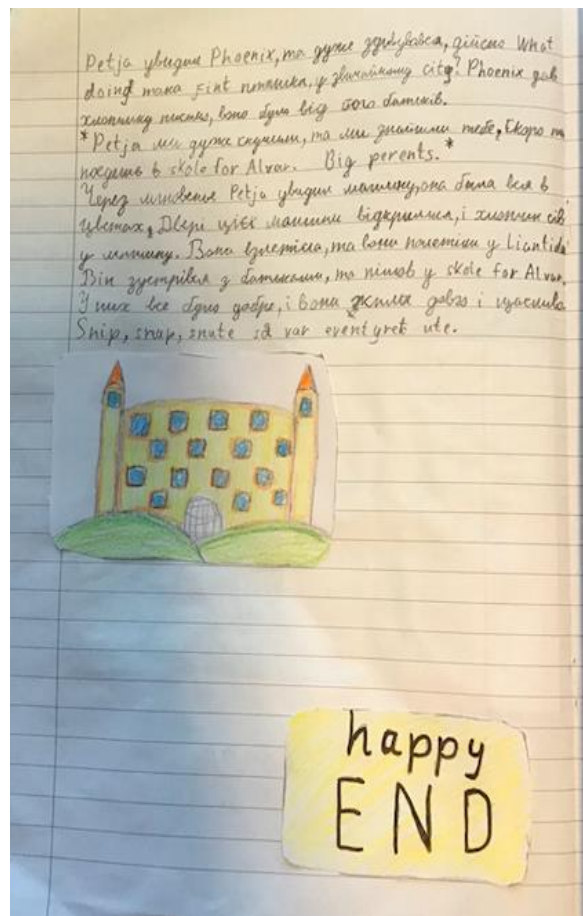 Petja увидив Phoenix, та дуже здивувався, дійсно What
doing така fint пташка, у звичайному city? Phoenix дав
хлопчику письмо, воно було від його батьків.
*Petja ми дуже скучили, та ми знайшли тебе, Скоро ти
поедешь в skole for Alvar. Big perents.*
Через мгновенье Petja увидил машину, она была вся в
цветах, Двері цієї машини відкрилися, і хлопчик сів
у машину. Вона взлетіла, та вони полетіли у Liantida
Він зустрівся з батьками, та пішов у skole for Alvar.
У них все було добре, і вони жили довго і щасливо
Snip, snap, snute så var eventyret ute.
happy
END